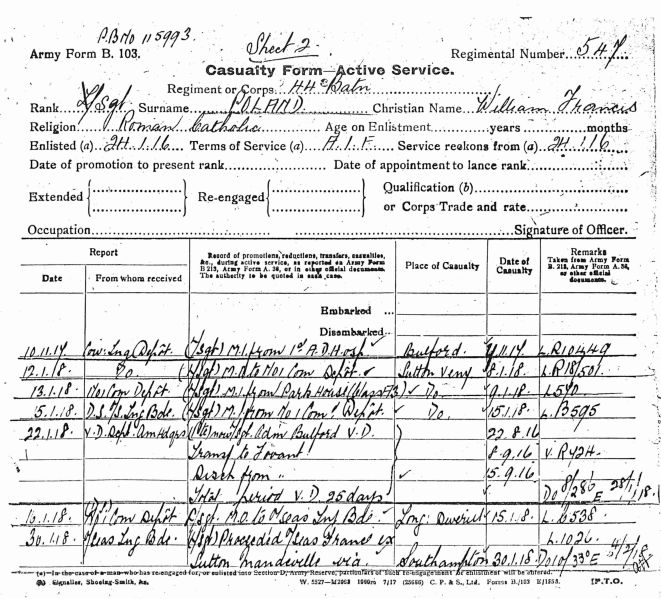 P.B No 115993.
Army Form B. 103.
Sheet 2.
Regimental Number 547
Casualty Form—Active Service.
Regiment or Corps 44th Batn
Rank L/Sgt Surname POLAND. Christian Name William Francis
Religion Roman Catholic Age on Enlistment years months
Enlisted (a) 24.1.16 Terms of Service (a) A.I.F. Service reckons from (a) 24.1.16
Date of promotion to present rank Date of appointment to lance rank
Extended Re-engaged Qualification (b)
or Corps Trade and rate
Occupation Signature of Officer.
Report
Date From whom received
Record of promotions, reductions, transfers, casualties, &c., during active service, as reported on Army Form B 213, Army Form A. 36, or in other official documents. The authority to be quoted in each case.
Place of Casualty
Date of Casualty
Remarks
Taken from Army Form B. 213, Army Form A. 36, or other official documents.
Embarked ...
Disembarked...
10.11.17 Con: Trg Depôt. (L/Sgt) M.I. from 1st A.D. Hosp Bulford. 9.11.17 L.R10449
12.1.18 Do. (L/Sgt) M.O. to No 1 Com Depôt. Sutton Veny 8.1.18. L.R18/501
13.1.18 No 1 Com Depôt (L/Sgt) M.I. from Park House Do. 9.1.18. L570
15.1.18. O.S. Trg Bde. (L/Sgt) M.I. from No 1 Com Depôt. Do. 15.1.18. L.B595
22.1.18. V.D. Dept. Am Hdqrs now L/Sgt Adm Bulford V.D. 22.8.16
Transf. to Fovant 8.9.16 V.R424.
Disch from " 15.9.16
Total period V.D. 25 days Do
16.1.18. No 1 Com Depôt L/Sgt. M.O. to O/seas Trg Bde. Long: Deverill 15.1.18. L.B538.
30.1.18. O/seas Trg Bde. (L/Sgt) Proceeded O/seas France ex L.1026.
Sutton Mandeville via. Southampton 30.1.18
(a)—In the case of a man who has re-engaged for, or enlisted into Section D, Army Reserve, particulars of such re-engagement or enlistment will be entered.
(b) Signaller, Shoeing-Smith, &c. [P.T.O.